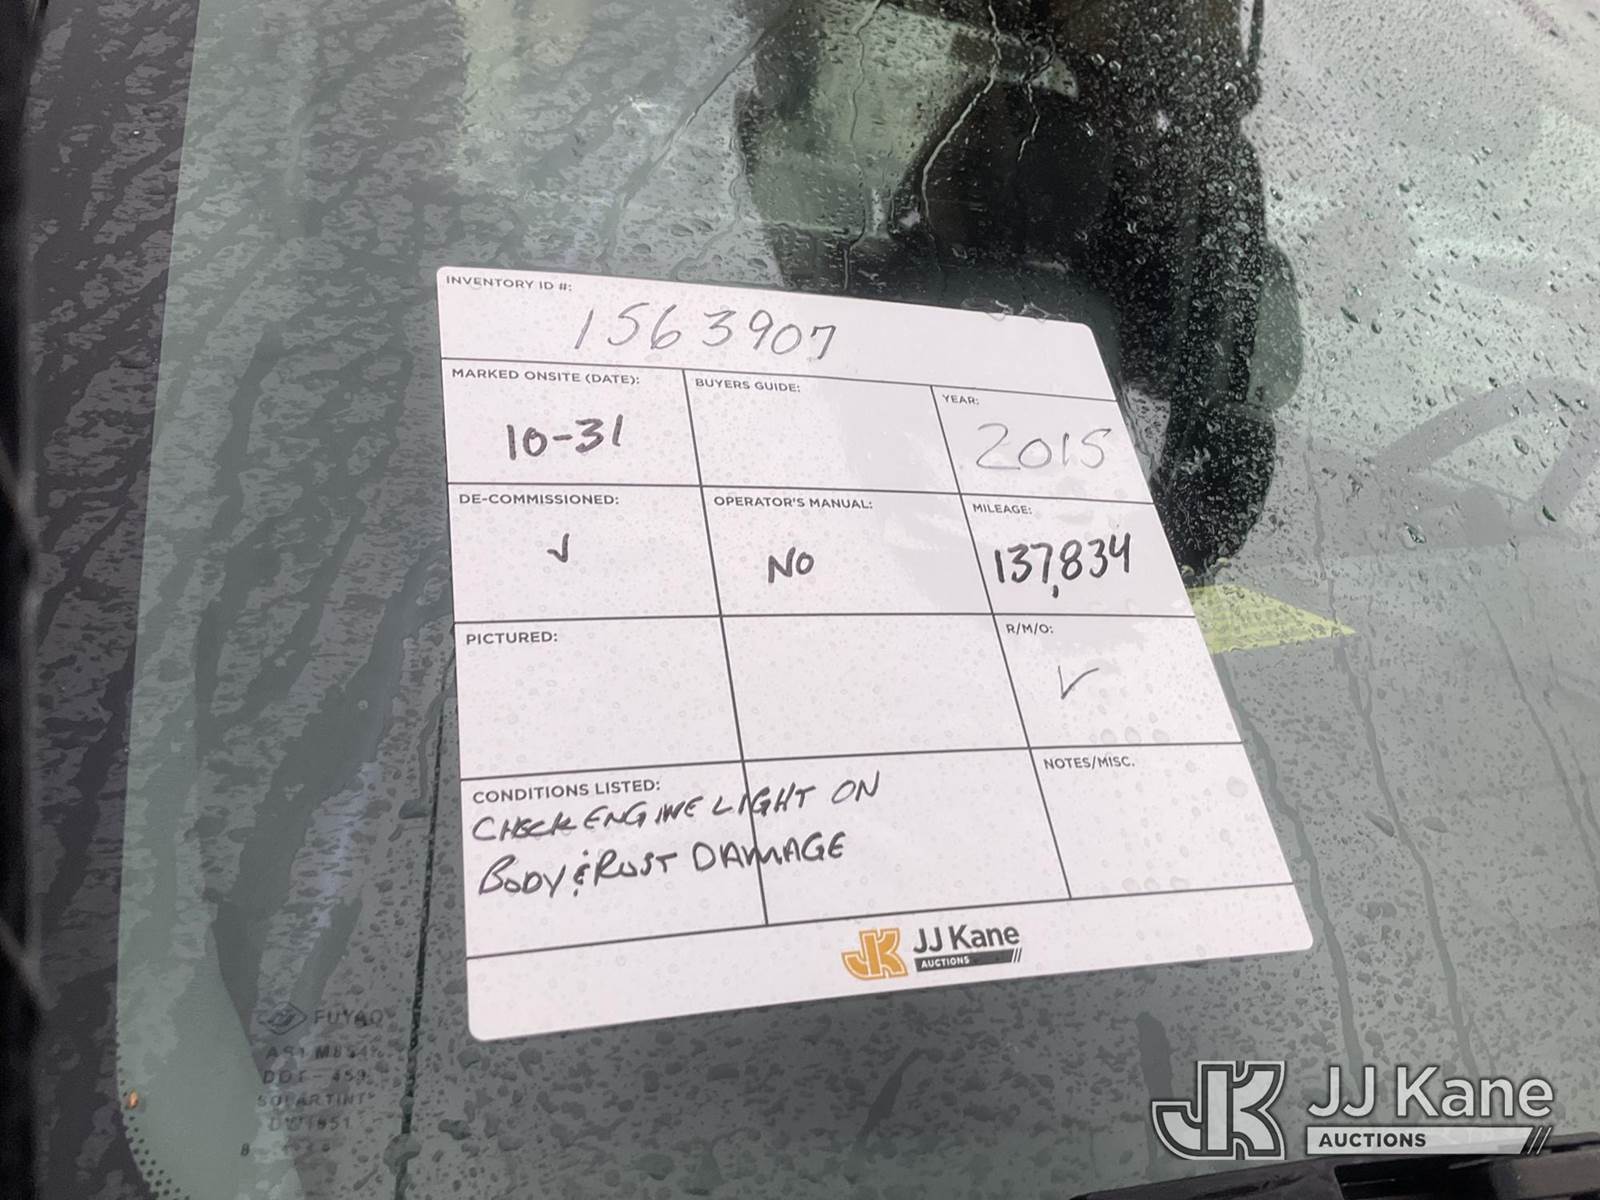 INVENTORY ID #:
1563907
MARKED ONSITE (DATE):
10-31
BUYERS GUIDE:
YEAR:
2015
DE-COMMISSIONED:
✓
OPERATOR'S MANUAL:
NO
MILEAGE:
137,834
PICTURED:
R/M/O:
✓
CONDITIONS LISTED:
CHECK ENGINE LIGHT ON
BODY & RUST DAMAGE
NOTES/MISC.
JJ Kane
AUCTIONS
FUYAO
SOLARTINT
JJ Kane
AUCTIONS